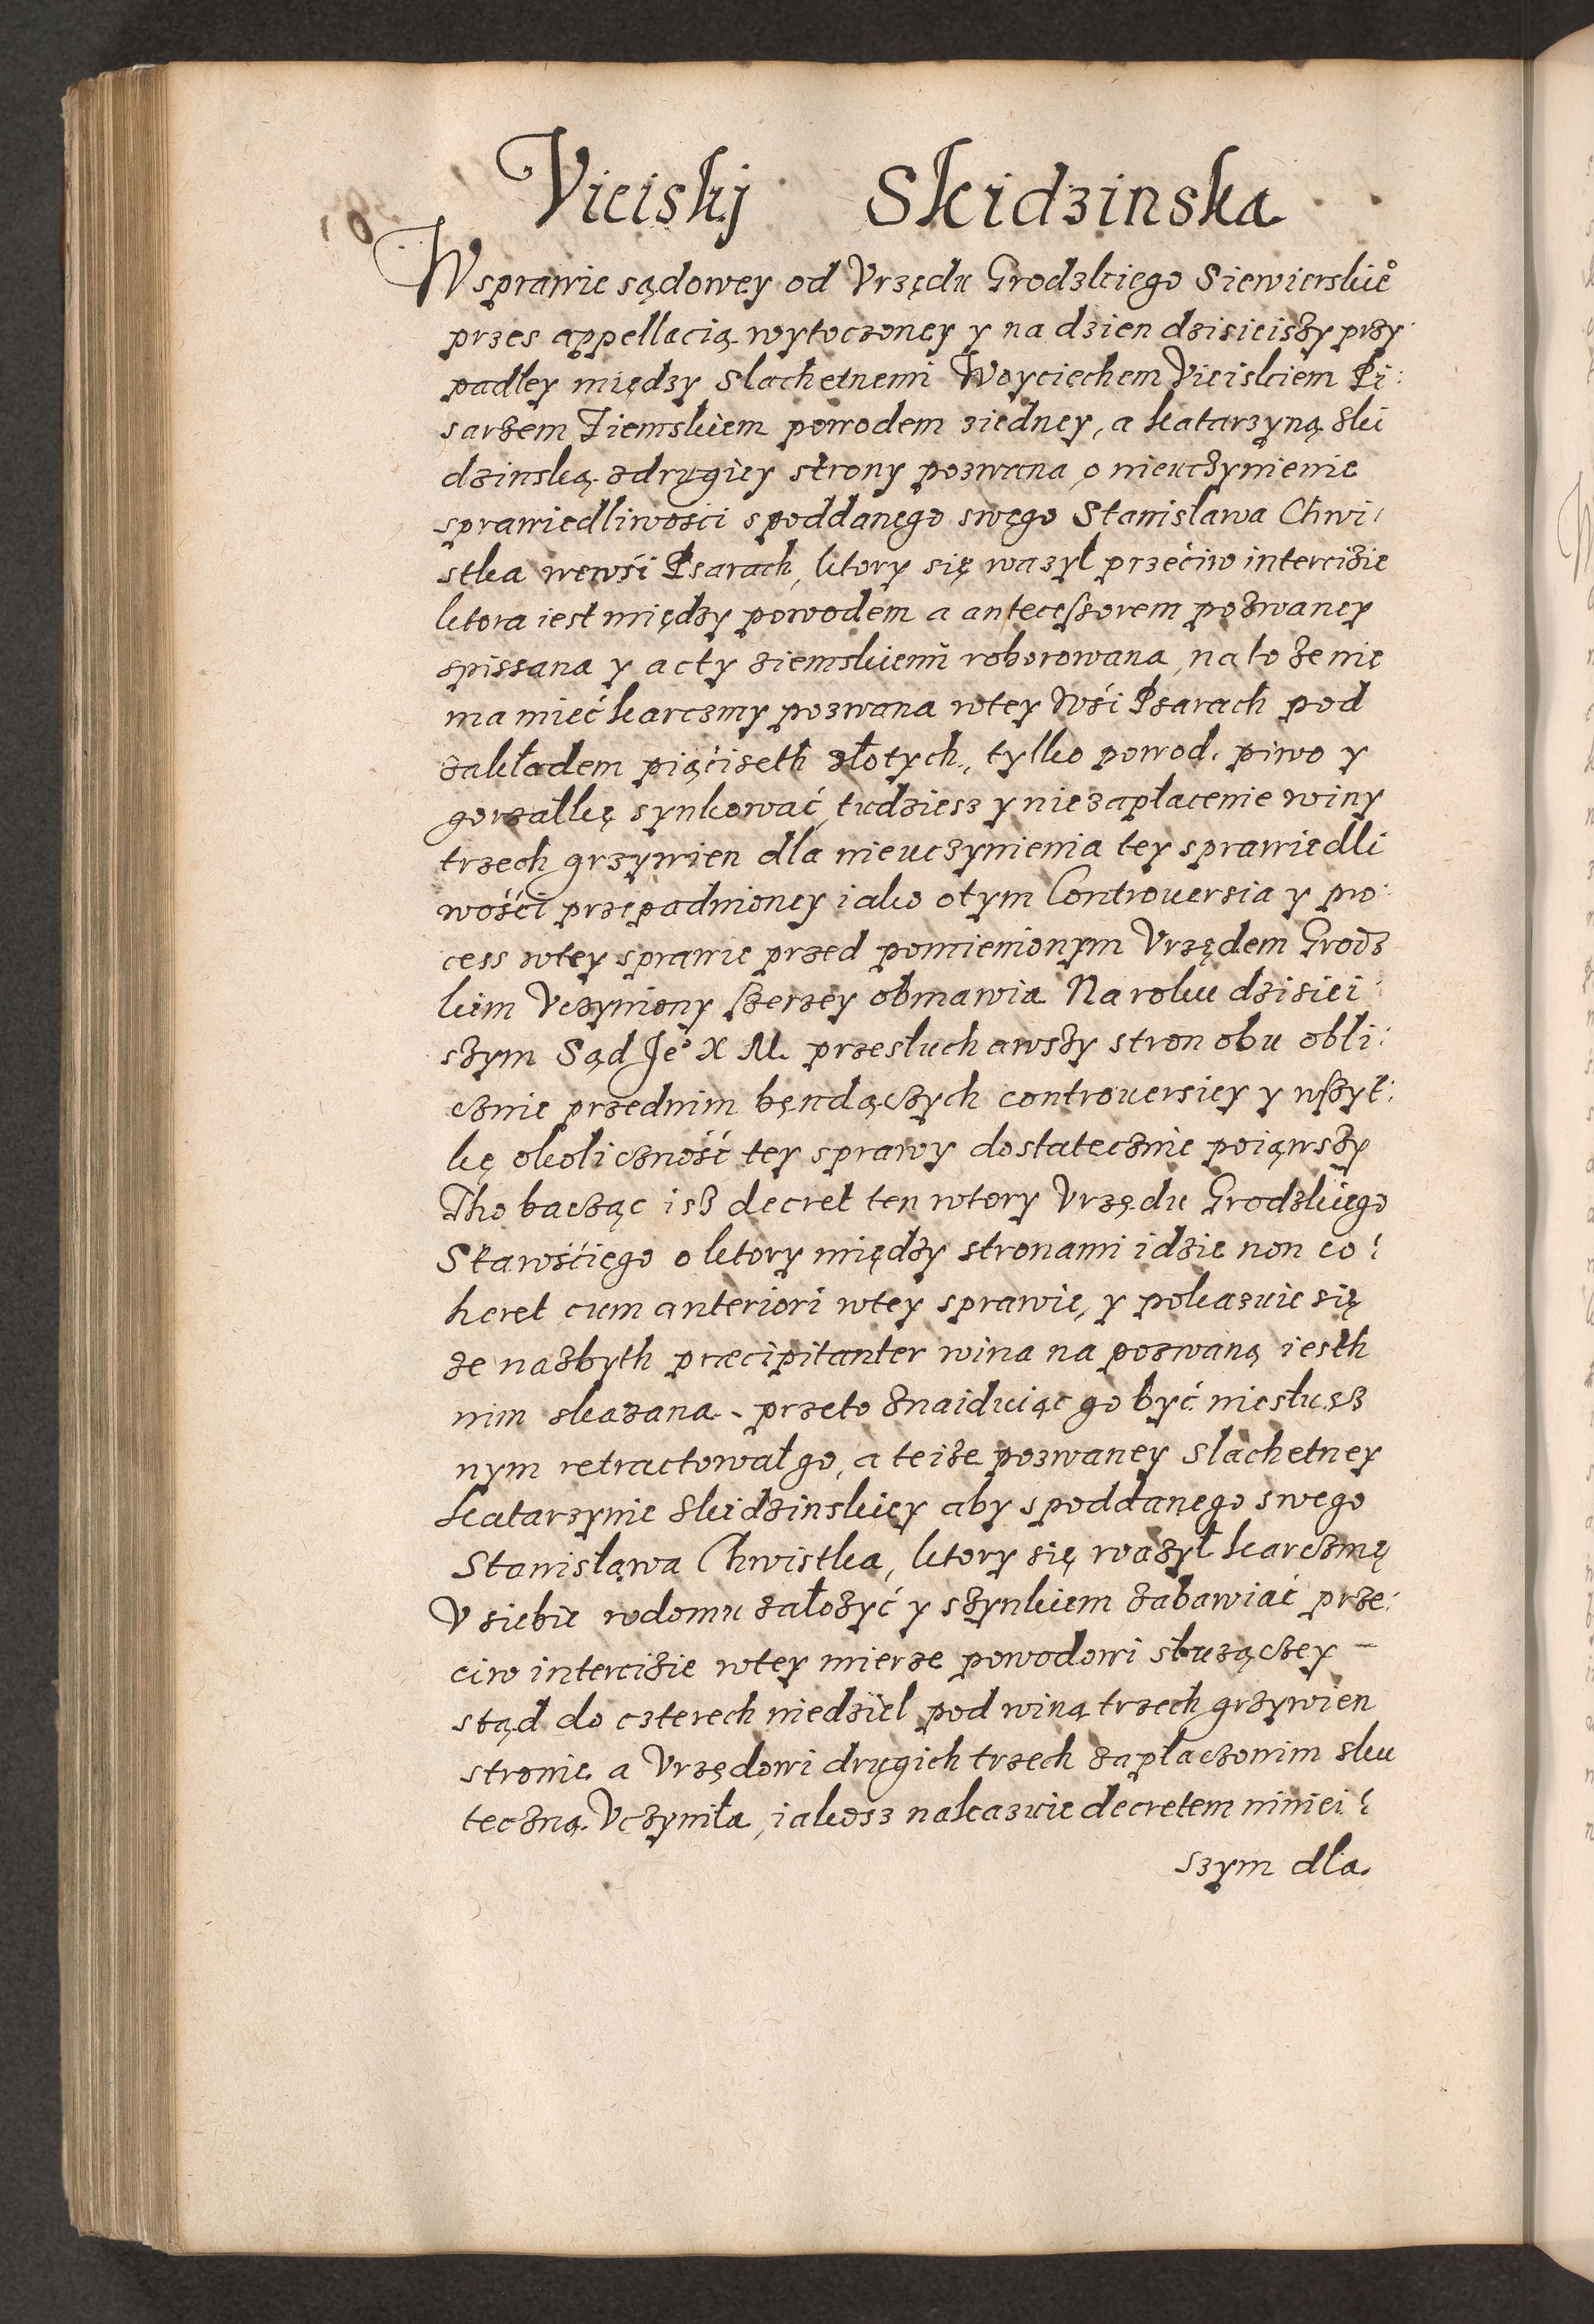 Vieiskj Skidzinska
W sprawie sądowey od Vrzędu Grodzkiego Siewierskie°
przes appellacią wytoczoney y na dzien dzisieiszy przy
padłey między Slachetnemi Woyciechem Vieiskiem Pi:
sarzem Ziemskiem powodem ziedney, a Katarzyną Ski
dzinską zdrugiey strony pozwana, o nieuczynienie
sprawiedliwości spoddanego swego Stanislawa Chwi:
stka wewśi Psarach, ktory się wazył przećiw intercizie
ktora iest między powodem a antecessorem pozwaney
spissana y acty ziemskiemi roborowana, na to ze nie
ma mieć karczmy pozwana wtey Wśi Psarach pod
zakładem piąćiseth złotych, tylko powod. piwo y
gorzałkę synkować, tudziesz y niezapłacenie winy
trzech grzywien dla nieuczynienia tey sprawiedli
wości przepadnioney iako otym Controuersia y pro:
cess wtey sprawie przed pomienionym Vrzędem Grodz
kim Vczyniony szerzey obmawia. Na roku dzisiei:
szym Sąd Je° X M. przesłuchawszy stron obu obli:
cznie przednim będączych controuersiey y wszyt:
kę okoliczność tey sprawy dostatecznie poiąwszy
Tho bacząc isz decret ten wtory Vrzędu Grodzkiego
Starośćiego o ktory między stronami idzie non co:
heret cum anteriori wtey sprawie, y pokazuie się
ze nazbyth præcipitanter wina na pozwaną iesth
nim skazana. przeto znaiduiąc go być niesłusz
nym retractował go, a teize pozwaney Slachetney
Katarzynie Skidzinskiey aby spoddanego swego
Stanisława Chwistka, ktory się wazył karczmę
V siebie wdomu załozyć y szynkiem zabawiać prze:
ciw intercizie wtey mierze powodowi słuzączey –
stąd do czterech niedziel pod winą trzech grzywien
stronie a Vrzędowi drugich trzech zapłaczonim sku
teczną Vczyniła, iakosz nakazuie decretem niniei:
szym dla.